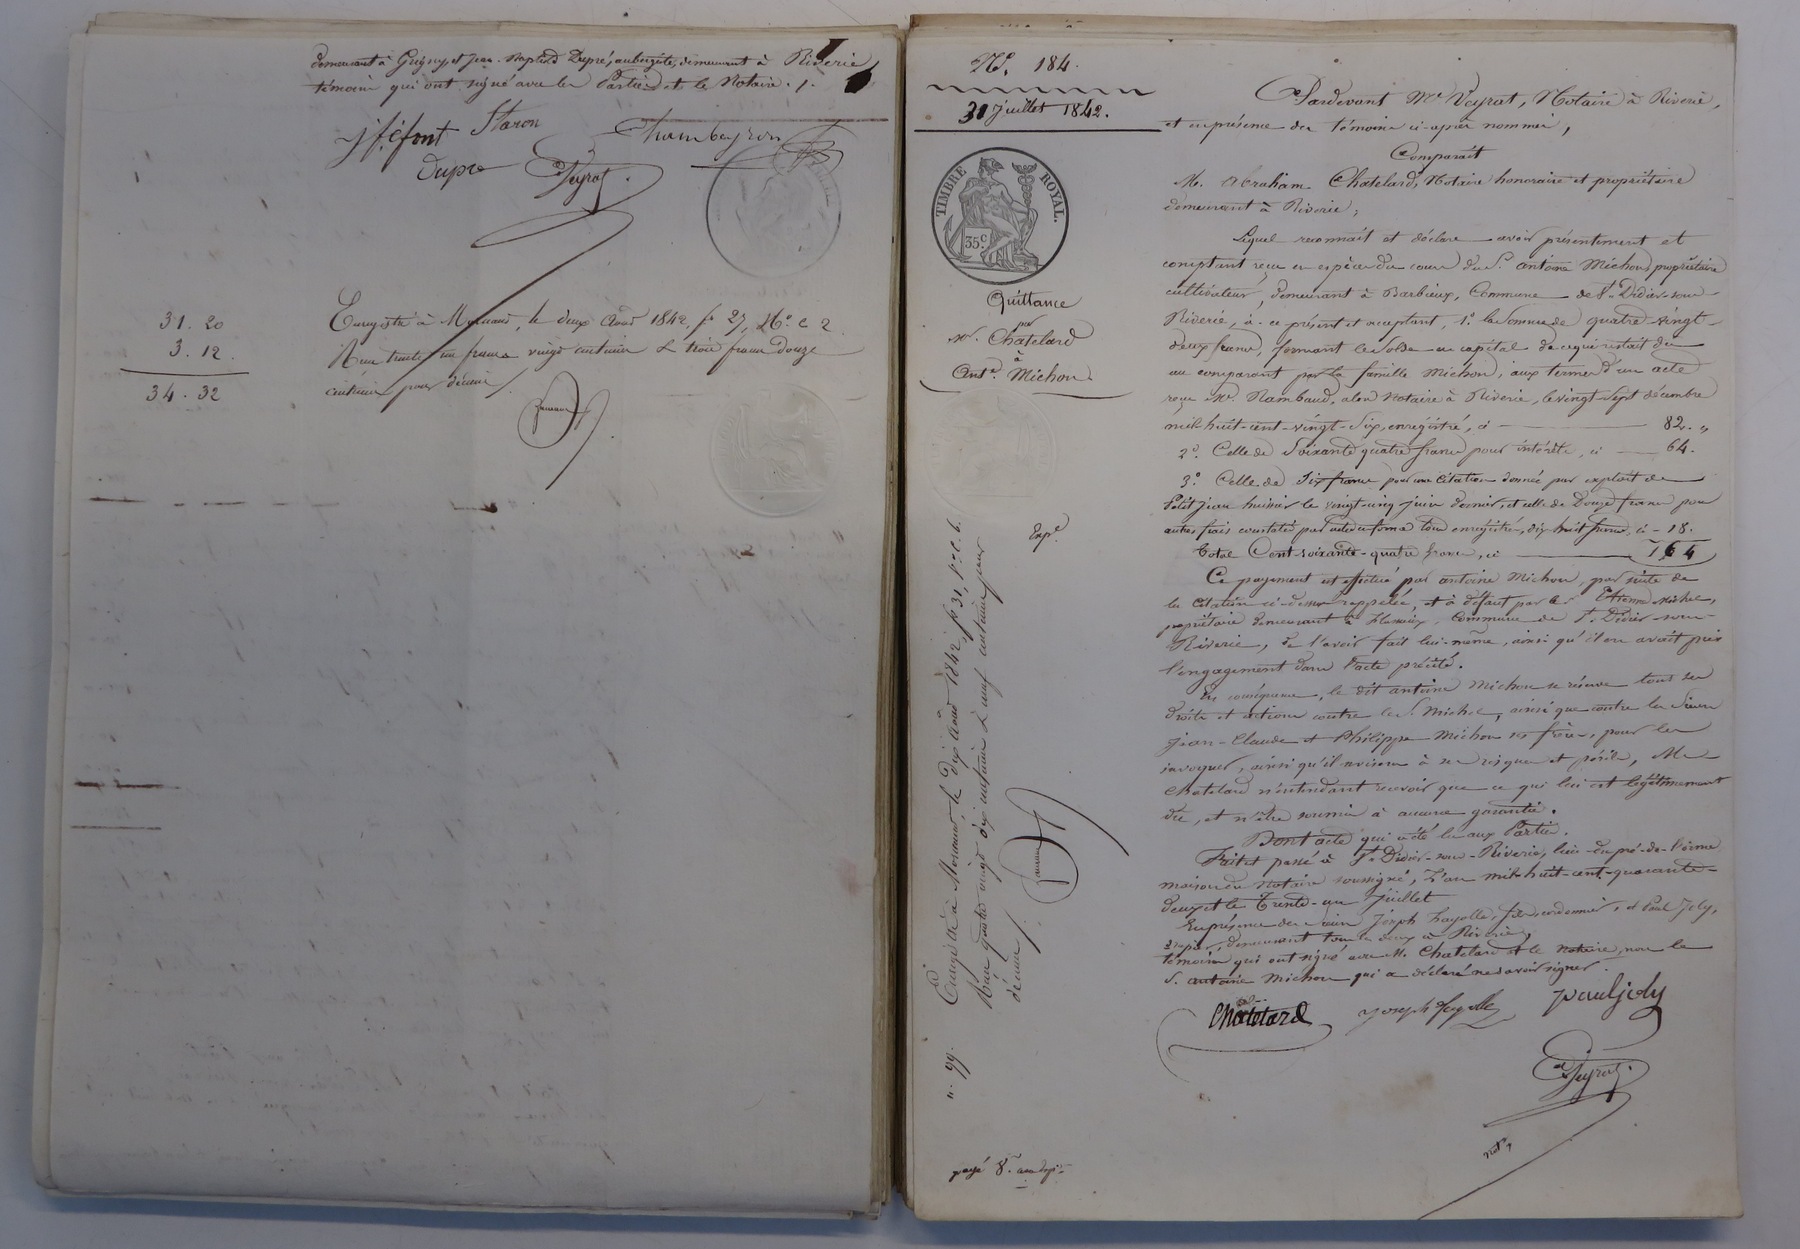 demeurant à Grigny et Jean-Baptiste Dupré, aubergiste, demeurant à Riverie
témoins qui ont signé avec les Parties et le Notaire.
Staron
Chambeyron
Dupre
Veyrat.
31. 20
3. 12.
34. 32
Enregistré à Mornant, le deux Août 1842, f° 27, R° c 2.
Reçu trente un francs vingt centimes & trois francs douze
centimes pour décime
N°. 184.
31 Juillet 1842.
TIMBRE ROYAL.
35c.
Quittance
par
M. Chatelard
à
Ant.e Michon.
Exp.e
Enregistré à Mornant, le dix août 1842, f° 31, V° c. 6.
Reçu quatre vingt dix centimes & neuf centimes pour
décime
n. 99.
payé 8.
Pardevant Me Veyrat, Notaire à Riverie,
et en présence des témoins ci-après nommés,
Comparait
M. Abraham Chatelard, Notaire honoraire et propriétaire
demeurant à Riverie;
Lequel reconnait et déclare avoir présentement et
comptant reçu en espèces du cours du S. Antoine Michon propriétaire
cultivateur, demeurant à Barbieux, Commune de St. Didier-sous-
Riverie, à ce présent et acceptant, 1°. la Somme de quatre-vingt-
deux francs, formant le solde en capital de ce qui restait du
au comparant par la famille Michon, aux termes d'un acte
reçu Me. Rambaud, alors Notaire à Riverie, le vingt-sept décembre
mil-huit-cent-vingt-six, enregistré, ci 82. „
2°. Celle de Soixante quatre francs pour intérêts, ci 64.
3°. Celle de Six francs pour une Citation donnée par exploit de
Petit Jean huissier le vingt-cinq juin dernier, et celle de Douze francs pour
autres frais constatés par actes en forme tous enregistrés, dix-huit francs, ci - 18.
Total Cent-soixante-quatre francs, ci 164
Ce payement est effectué par Antoine Michon, par suite de
la Citation ci-dessus rappelée, et à défaut par le S. Etienne Michel,
propriétaire demeurant à Commune de St. Didier-sous-
Riverie, de l'avoir fait lui-même, ainsi qu'il en avait pris
l'engagement dans l'acte précité.
En conséquence, le dit Antoine Michon se réserve tous ses
droits et actions contre le S. Michel, ainsi que contre les Sieurs
Jean-Claude et Philippe Michon ses frères, pour les
invoquer, ainsi qu'il avisera à ses risques et périls, M.
Chatelard n'entendant recevoir que ce qui lui est légitimement
dû, et n'être soumis à aucune garantie.
Dont acte qui a été lu aux Parties.
Fait et passé à St. Didier-sous-Riverie, lieu-du-pré-de-l'orme
maison du Notaire soussigné, L'an mil-huit-cent-quarante-
deux et le Trente-un Juillet
En présence des Sieurs Joseph Fayolle, fils, cordonnier, et Paul Joly,
demeurant tous les deux à Riverie,
témoins qui ont signé avec M. Chatelard et le Notaire, non le
S. Antoine Michon qui a déclaré ne savoir signer.
Chatelard
Joseph Fayolle
Paul joly
Veyrat.
not.e